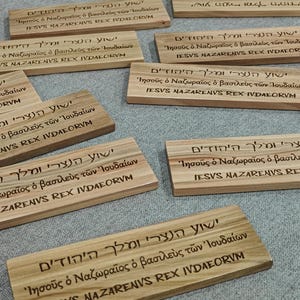 ישוע הנצרי ומלך היהודים
Ἰησοῦς ὁ Ναζωραῖος ὁ βασιλεὺς τῶν Ἰουδαίων
IESVS NAZARENVS REX IVDAEORVM
ישוע הנצרי ומלך היהודים
ὁ Ναζωραῖος ὁ βασιλεὺς τῶν Ἰουδαίων
NAZARENVS REX IVDAEORVM
ישוע הנצרי ומלך היהודים
Ἰησοῦς ὁ Ναζωραῖος ὁ βασιλεὺς τῶν Ἰουδαίων
IESVS NAZARENVS REX IVDAEORVM
ישוע הנצרי ומלך היהודים
Ἰησοῦς ὁ Ναζωραῖος ὁ βασιλεὺς τῶν Ἰουδαίων
IESVS NAZARENVS REX IVDAEORVM
ὁ βασιλεὺς τῶν Ἰουδαίων
REX IVDAEORVM
ישוע הנצרי ומלך היהודים
ὁ βασιλεὺς τῶν Ἰουδαίων
NAZARENVS REX IVDAEORVM
ישוע הנצרי ומלך היהודים
Ἰησοῦς ὁ Ναζωραῖος ὁ βασιλεὺς τῶν
IESVS NAZARENVS REX
ישוע הנצרי ומלך היהודים
Ἰησοῦς ὁ Ναζωραῖος ὁ βασιλεὺς τῶν Ἰουδαίων
NAZARENVS REX IVDAEORVM